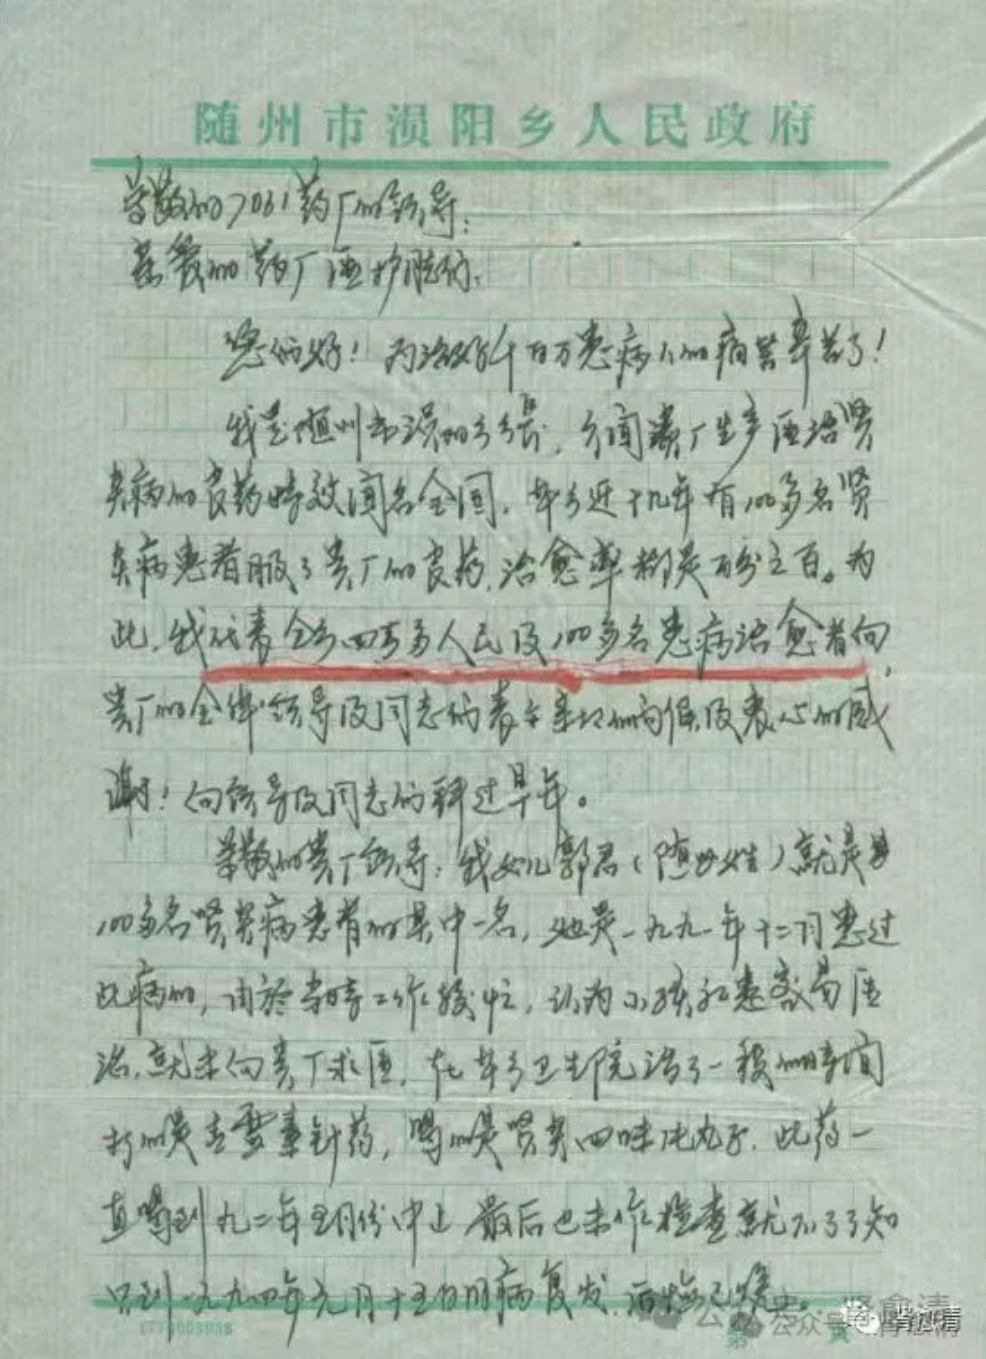 随州市涢阳乡人民政府
尊敬的7061药厂的领导:
亲爱的药厂医护人们:
您们好！为治好千百万患病人的病苦辛苦了！
我是随州市涢阳乡乡长，乡闻贵厂生产医治肾
炎病的良药特效闻名全国，本乡近十几年有100多名肾
炎病患者服了贵厂的良药，治愈率都是百分之百。为
此，我代表全乡四万多人民及100多名患病治愈者向
贵厂的全体领导及同志们表示亲切的问候及衷心的感
谢！向领导及同志们拜过早年。
尊敬的贵厂领导：我女儿郭君（随母姓）就是
100多名肾炎病患者的其中一名，她是一九九一年十二月患过
此病的，由於当时工作较忙，认为小孩初患容易医
治，就未向贵厂求医，在本乡卫生院治了一段的时间
打的是青霉素针药，喝的是肾炎四味片丸子，此药一
直喝到九二年五月份中止 最后也未作检查就不了了知
只到一九九四年元月十五日旧病复发，
1774003938
第 页
公众号 肾愈清